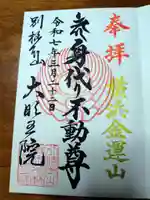 奉拝
横浜金運山
身代り不動尊
令和七年三月
別格本山
大明王院